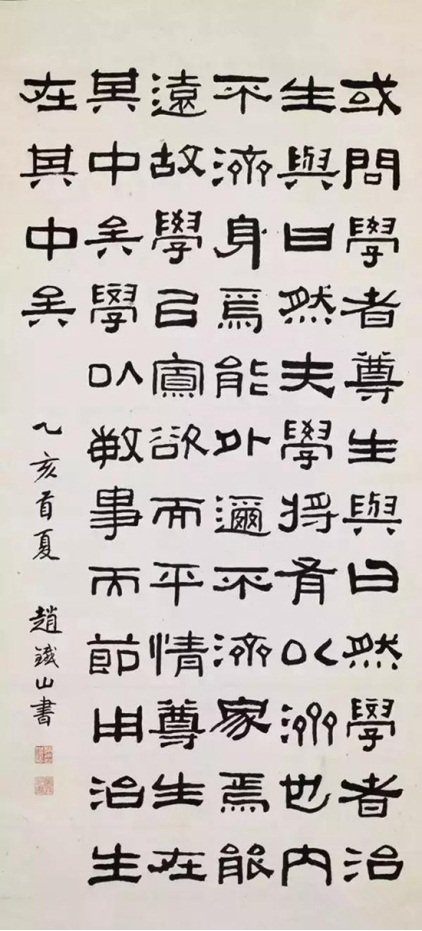 或問學者尊生與曰然學者治
生與曰然夫學將有以濟也內
不濟身焉能外邇不濟家焉能
遠故學以寡欲而平情尊生在
其中矣學以敏事而節用治生
在其中矣
乙亥首夏 趙鐵山書